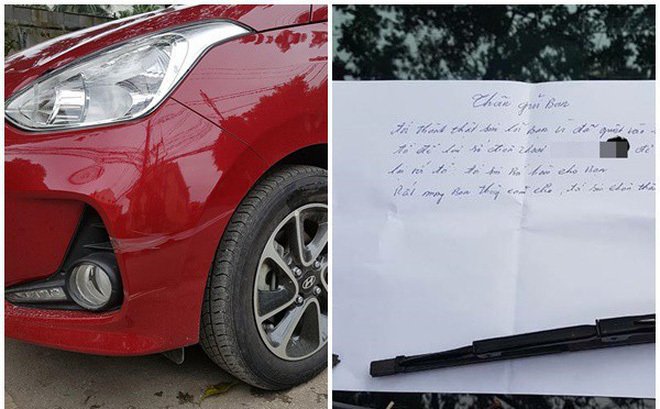 Thân gửi Bạn
tớ thành thật xin lỗi bạn vì đã quệt vào
tớ để lại số điện thoại để
lại với tớ tớ sẽ cho Bạn
Rất mong Bạn thông cảm cho, tớ xin chân thà